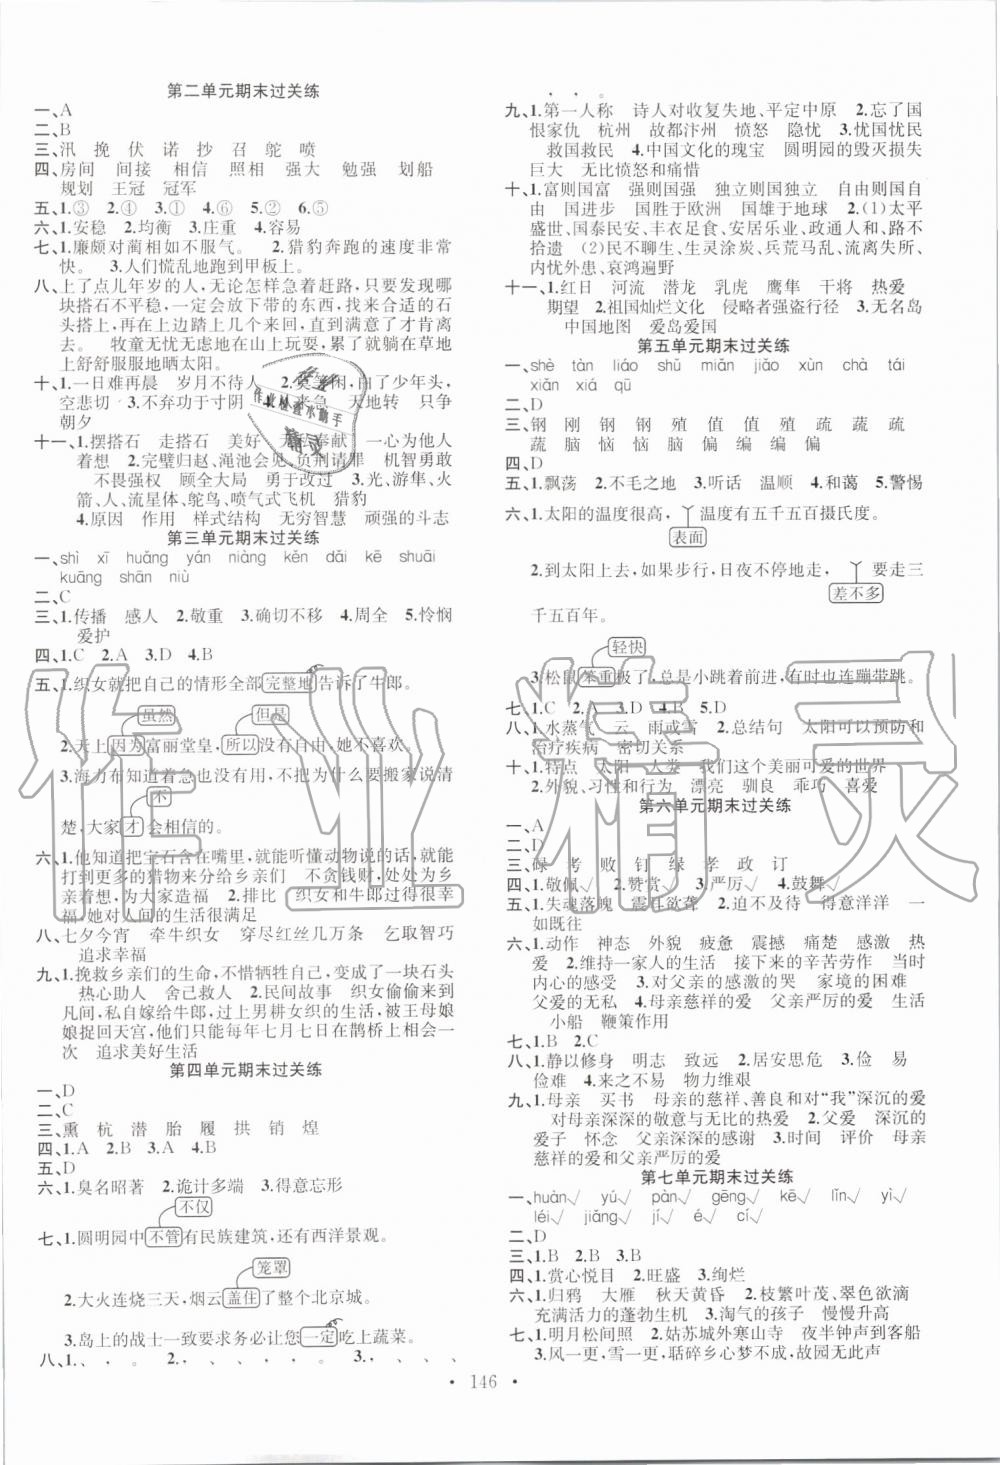 第二单元期末过关练
一、A
二、B
三、汛 挽 伏 诺 抄 召 鸵 喷
四、房间 间接 相信 照相 强大 勉强 划船
规划 王冠 冠军
五、1.③ 2.④ 3.① 4.⑥ 5.② 6.⑤
六、1.安稳 2.均衡 3.庄重 4.容易
七、1.廉颇对蔺相如不服气。 2.猎豹奔跑的速度非常
快。 3.人们慌乱地跑到甲板上。
八、上了点儿年岁的人,无论怎样急着赶路,只要发现哪
块搭石不平稳,一定会放下带的东西,找来合适的石
头搭上,再在上边踏上几个来回,直到满意了才肯离
去。 牧童无忧无虑地在山上玩耍,累了就躺在草地
上舒舒服服地晒太阳。
十、1.一日难再晨 岁月不待人 2.莫等闲,白了少年头,
空悲切 3.不弃功于寸阴 4.来急 天地转 只争
朝夕
十一、1.摆搭石 走搭石 美好 无私奉献 一心为他人
着想 2.完璧归赵、渑池会见、负荆请罪 机智勇敢
不畏强权 顾全大局 勇于改过 3.光、游隼、火
箭、人、流星体、鸵鸟、喷气式飞机 猎豹
4.原因 作用 样式结构 无穷智慧 顽强的斗志
第三单元期末过关练
一、shì xī huǎng yán niàng kěn dǎi kē shuāi
kuāng shān niù
二、C
三、1.传播 感人 2.敬重 3.确切不移 4.周全 5.怜悯
爱护
四、1.C 2.A 3.D 4.B
五、1.织女就把自己的情形全部完整地告诉了牛郎。
虽然 但是
2.天上因为富丽堂皇,所以没有自由,她不喜欢。
3.海力布知道着急也没有用,不把为什么要搬家说清
不
楚,大家才会相信的。
六、1.他知道把宝石含在嘴里,就能听懂动物说的话,就能
打到更多的猎物来分给乡亲们 不贪钱财,处处为乡
亲着想,为大家造福 2.排比 织女和牛郎过得很幸
福,她对人间的生活很满足
八、七夕今宵 牵牛织女 穿尽红丝几万条 乞取智巧
追求幸福
九、1.挽救乡亲们的生命,不惜牺牲自己,变成了一块石头
热心助人 舍己救人 2.民间故事 织女偷偷来到
凡间,私自嫁给牛郎,过上男耕女织的生活,被王母娘
娘捉回天宫,他们只能每年七月七日在鹊桥上相会一
次 追求美好生活
第四单元期末过关练
一、D
二、C
三、熏 杭 潜 胎 履 拱 销 煌
四、1.A 2.B 3.A 4.B
五、D
六、1.臭名昭著 2.诡计多端 3.得意忘形
不仅
七、1.圆明园中不管有民族建筑,还有西洋景观。
笼罩
2.大火连烧三天,烟云盖住了整个北京城。
3.岛上的战士一致要求务必让您一定吃上蔬菜。
八、1. 、 , 。 2. , 、 、 , 。 3. , 、 、 、
, , 。
九、1.第一人称 诗人对收复失地、平定中原 2.忘了国
恨家仇 杭州 故都汴州 愤怒 隐忧 3.忧国忧民
救国救民 4.中国文化的瑰宝 圆明园的毁灭损失
巨大 无比愤怒和痛惜
十、1.富则国富 强则国强 独立则国独立 自由则国自
由 国进步 国胜于欧洲 国雄于地球 2.(1)太平
盛世、国泰民安、丰衣足食、安居乐业、政通人和、路不
拾遗 (2)民不聊生、生灵涂炭、兵荒马乱、流离失所、
内忧外患、哀鸿遍野
十一、1.红日 河流 潜龙 乳虎 鹰隼 干将 热爱
期望 2.祖国灿烂文化 侵略者强盗行径 3.无名岛
中国地图 爱岛爱国
第五单元期末过关练
一、shè tàn liáo shǔ miǎn jiǎo xùn chà tái
xiǎn xiá qū
二、D
三、钢 刚 钢 钢 殖 值 值 殖 疏 蔬 蔬 疏
蔬 脑 恼 恼 脑 偏 编 编 偏
四、D
五、1.飘荡 2.不毛之地 3.听话 温顺 4.和蔼 5.警惕
六、1.太阳的温度很高,温度有五千五百摄氏度。
表面
2.到太阳上去,如果步行,日夜不停地走,要走三
差不多
千五百年。
轻快
3.松鼠笨重极了,总是小跳着前进,有时也连蹦带跳。
七、1.C 2.A 3.D 4.B 5.D
八、1.水蒸气 云 雨或雪 2.总结句 太阳可以预防和
治疗疾病 密切关系
十、1.特点 太阳 人类 我们这个美丽可爱的世界
2.外貌、习性和行为 漂亮 驯良 乖巧 喜爱
第六单元期末过关练
一、A
二、D
三、碌 考 败 钉 绿 孝 政 订
四、1.敬佩√ 2.赞赏√ 3.严厉√ 4.鼓舞√
五、1.失魂落魄 震耳欲聋 2.迫不及待 得意洋洋 一
如既往
六、1.动作 神态 外貌 疲惫 震撼 痛楚 感激 热
爱 2.维持一家人的生活 接下来的辛苦劳作 当时
内心的感受 3.对父亲的感激的哭 家境的困难
父爱的无私 4.母亲慈祥的爱 父亲严厉的爱 生活
小船 鞭策作用
七、1.B 2.C
八、1.静以修身 明志 致远 2.居安思危 3.俭 易
俭难 4.来之不易 物力维艰
九、1.母亲 买书 母亲的慈祥、善良和对“我”深沉的爱
对母亲深深的敬意与无比的热爱 2.父爱 深沉的
爱子 怀念 父亲深深的感谢 3.时间 评价 母亲
慈祥的爱和父亲严厉的爱
第七单元期末过关练
一、huàn√ yú√ pàn√ gēng√ kē√ lǐn√ yì√
léi√ jiǎng√ jí√ é√ cí√
二、D
三、1.B 2.B 3.B
四、1.赏心悦目 2.旺盛 3.绚烂
六、1.归鸦 大雁 秋天黄昏 2.枝繁叶茂、翠色欲流
充满活力的蓬勃生机 3.淘气的孩子 慢慢升高
七、1.明月松间照 2.姑苏城外寒山寺 夜半钟声到客船
3.风一更,雪一更,聒碎乡心梦不成,故园无此声
· 146 ·
作业精灵
作业检查小助手
精灵